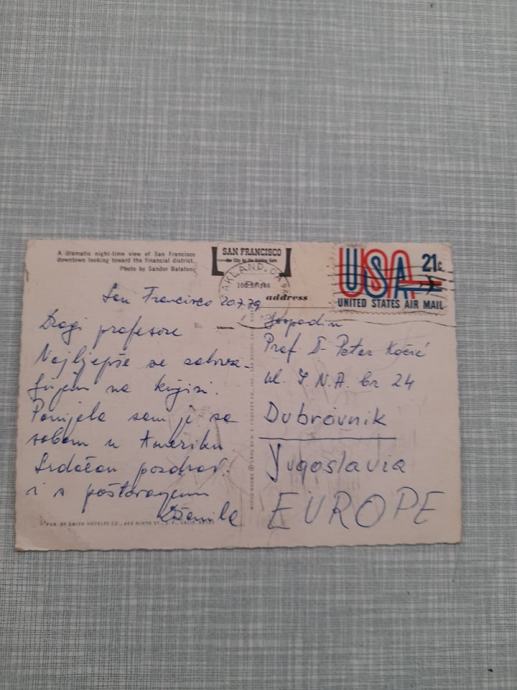 A dramatic night-time view of San Francisco
downtown looking toward the financial district.
Photo by Sandor Balatoni
SAN FRANCISCO
OAKLAND, CA
address
USA 21c
UNITED STATES AIR MAIL
San Francisco 20.7.79
Dragi profesore
Najljepše se zahva-
ljujem na knjizi.
Ponijela sam je sa
sobom u Ameriku
Srdačan pozdrav
i s poštovanjem
Gospodin
Prof. Petar
ul. J.N.A. br 24
Dubrovnik
Yugoslavia
EUROPE
SMITH NOVELTY CO.,